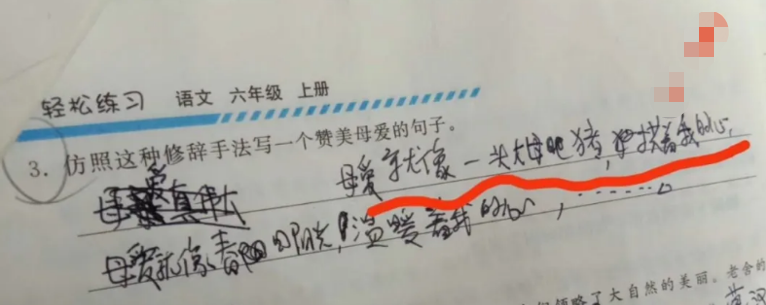 轻松练习 语文 六年级 上册
3. 仿照这种修辞手法写一个赞美母爱的句子。
母爱就像一头大母猪,拱着我的心,
母爱就像春阳,温暖着我的心,……。
领略了大自然的美丽。老舍的